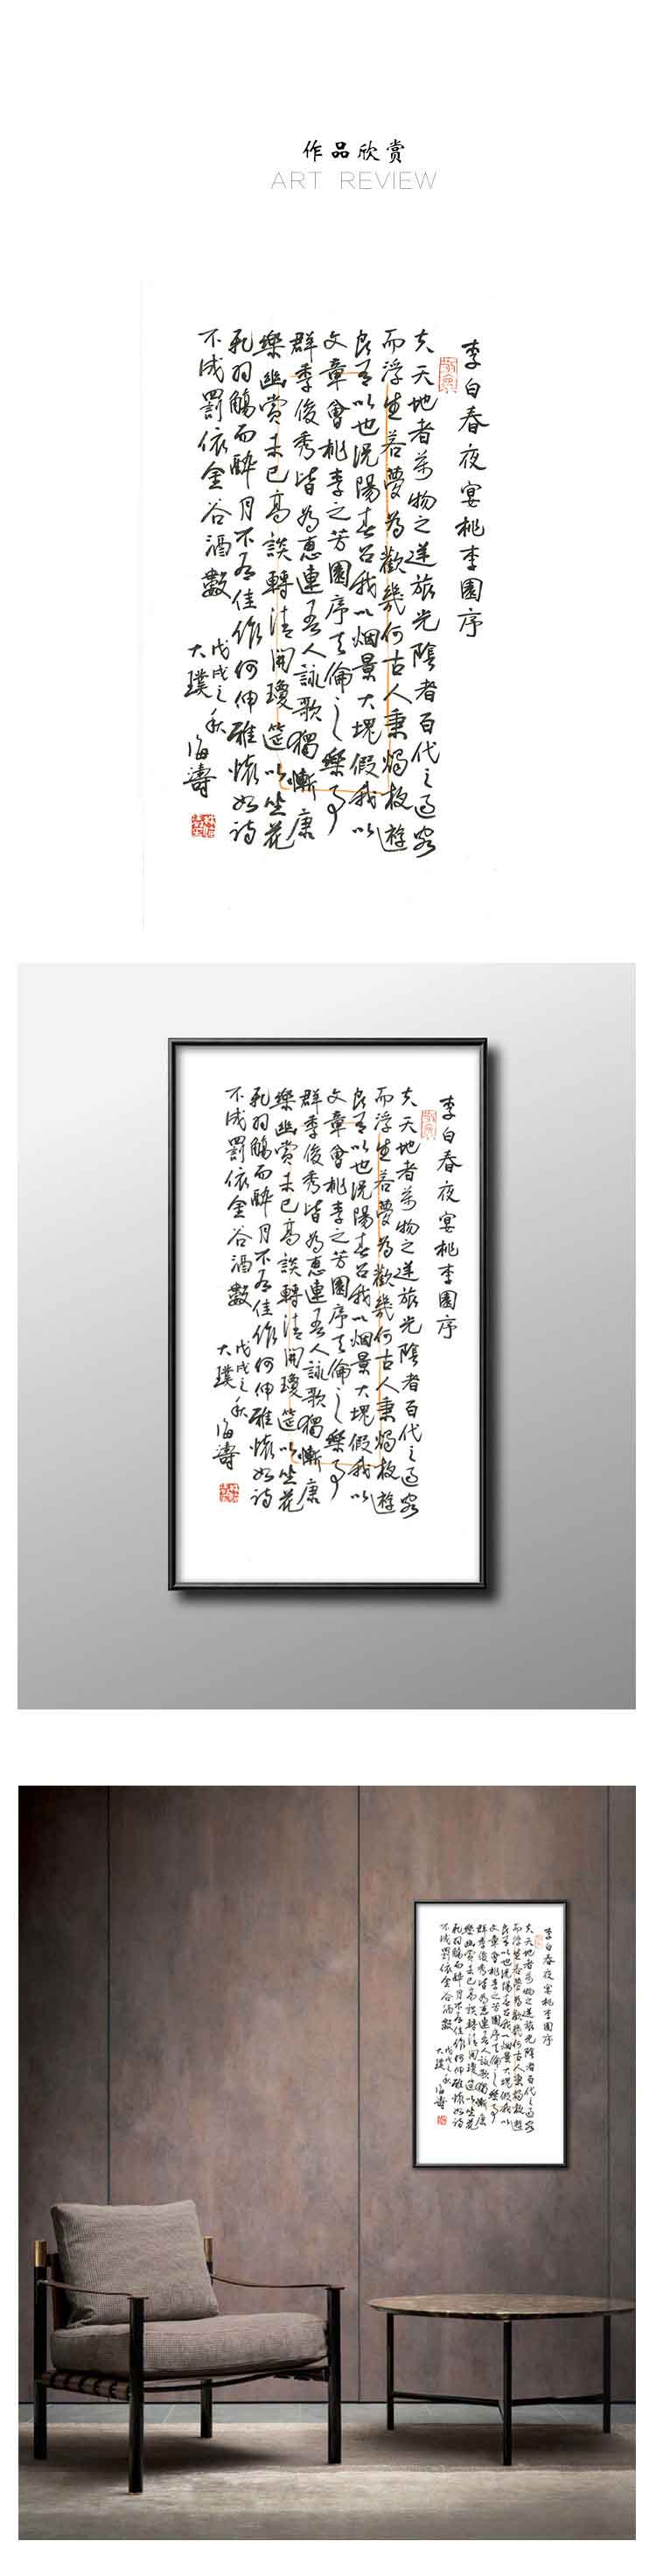 作品欣赏
ART REVIEW
李白春夜宴桃李園序
夫天地者萬物之逆旅光陰者百代之過客
而浮生若夢為歡幾何古人秉燭夜遊
良有以也況陽春召我以烟景大塊假我以
文章會桃李之芳園序天倫之樂事
群季俊秀皆為惠連吾人詠歌獨慚康
樂幽賞未已高談轉清開瓊筵以坐花
飛羽觴而醉月不有佳作何伸雅懷如詩
不成罰依金谷酒數
戊戌之秋
大璞海濤
李白春夜宴桃李園序
夫天地者萬物之逆旅光陰者百代之過客
而浮生若夢為歡幾何古人秉燭夜遊
良有以也況陽春召我以烟景大塊假我以
文章會桃李之芳園序天倫之樂事
群季俊秀皆為惠連吾人詠歌獨慚康
樂幽賞未已高談轉清開瓊筵以坐花
飛羽觴而醉月不有佳作何伸雅懷如詩
不成罰依金谷酒數
戊戌之秋
大璞海濤
李白春夜宴桃李園序
夫天地者萬物之逆旅光陰者百代之過客
而浮生若夢為歡幾何古人秉燭夜遊
良有以也況陽春召我以烟景大塊假我以
文章會桃李之芳園序天倫之樂事
群季俊秀皆為惠連吾人詠歌獨慚康
樂幽賞未已高談轉清開瓊筵以坐花
飛羽觴而醉月不有佳作何伸雅懷如詩
不成罰依金谷酒數
戊戌之秋
大璞海濤